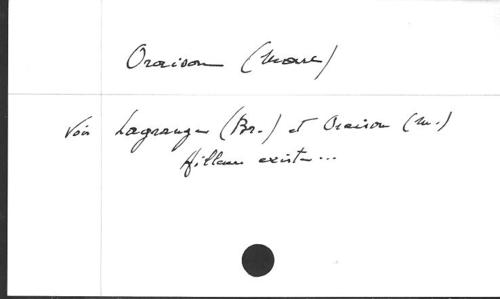 Oraison (Marc)
Voir Lagrange (Br.) et Oraison (M.)
Ailleurs existe...